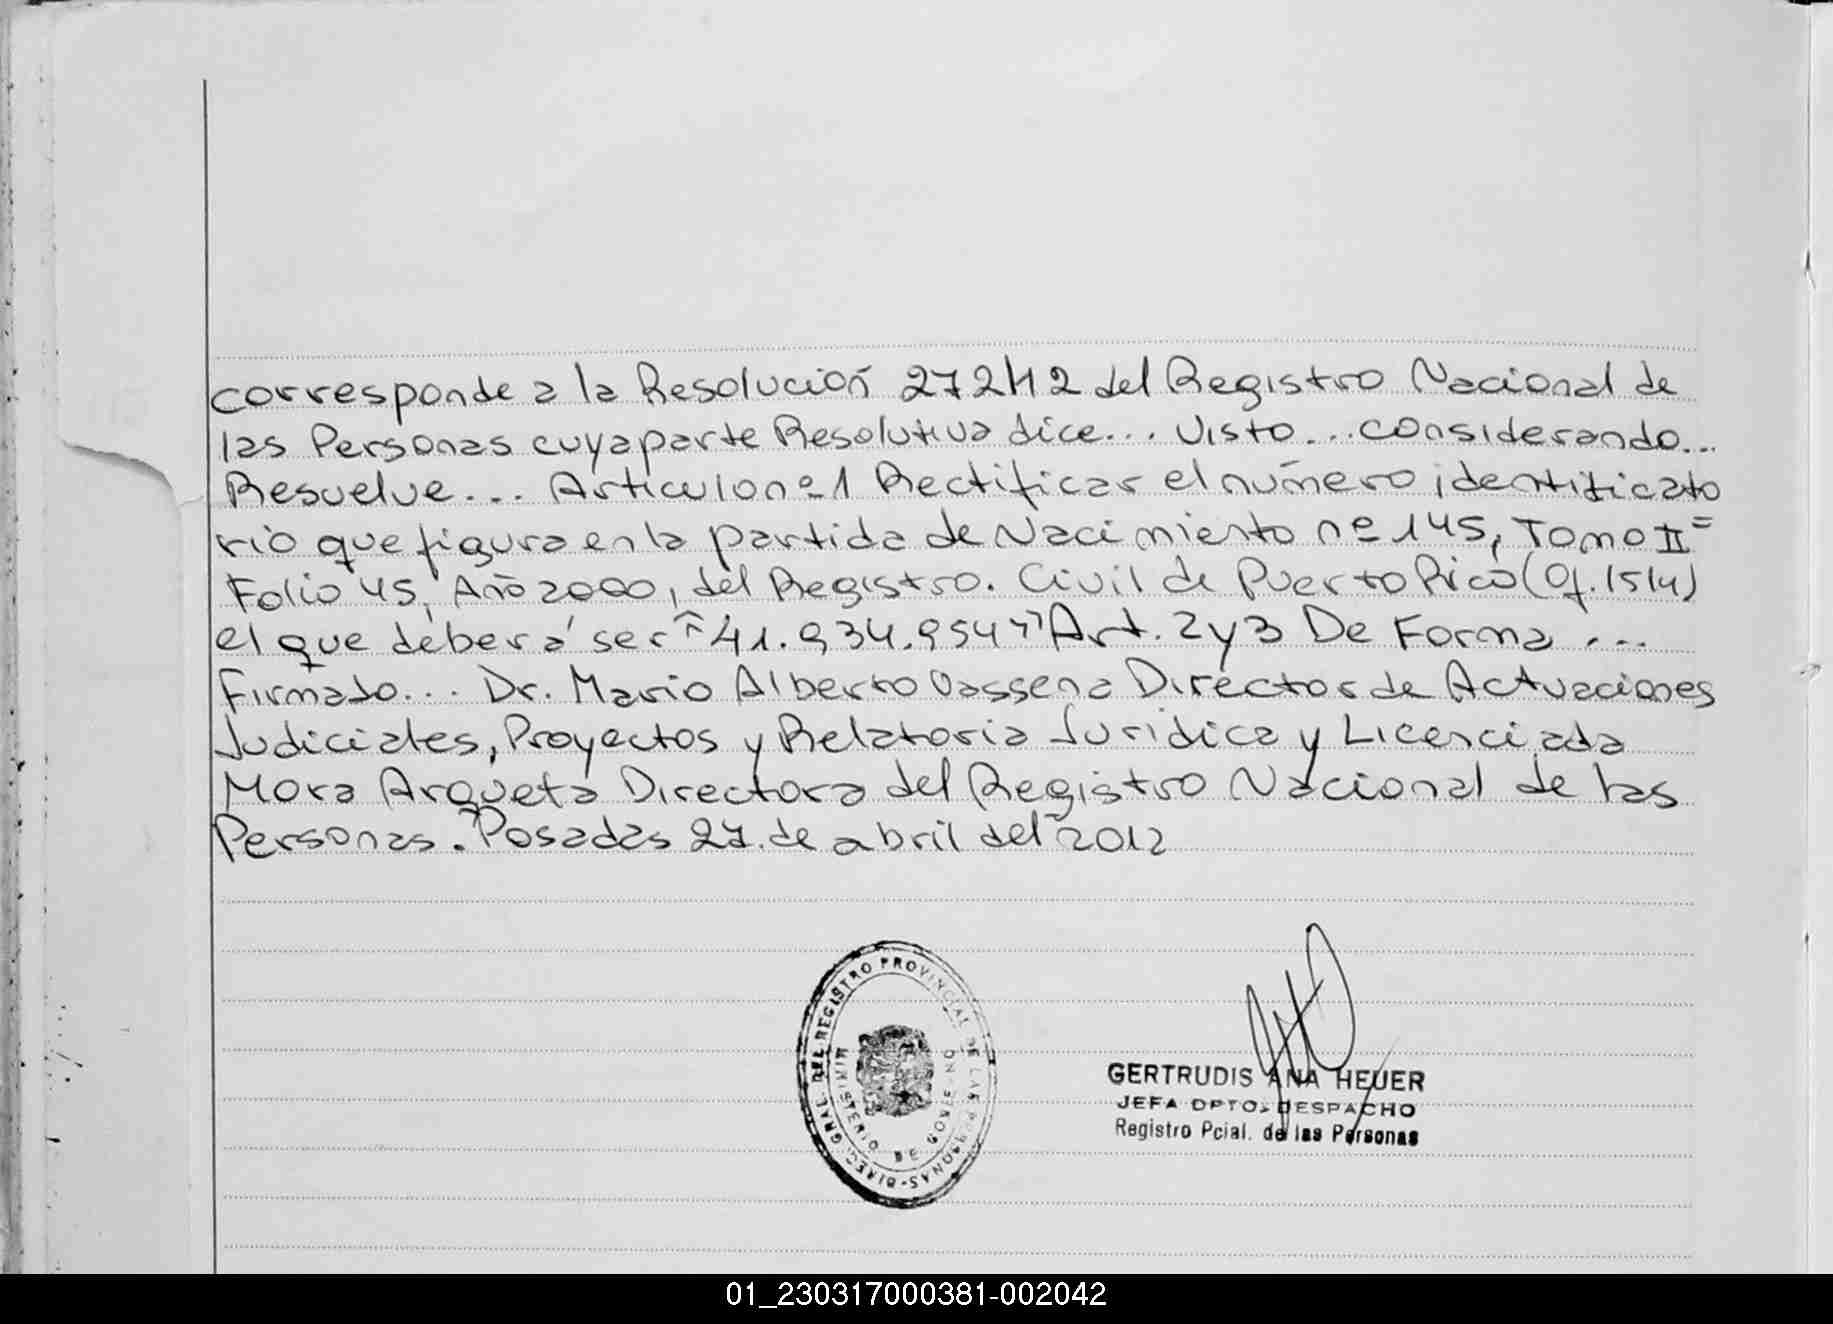 corresponde a la Resolución 272/12 del Registro Nacional de
las Personas cuya parte Resolutiva dice... Visto... considerando...
Resuelve... Articulo nº 1 Rectificar el número identificato
rio que figura en la partida de Nacimiento nº 145, Tomo II=
Folio 45, Año 2000, del Registro. Civil de Puerto Rico (Of. 1514)
el que deberá ser "41.934.954" Art. 2 y 3 De Forma ...
Firmado... Dr. Mario Alberto Dassena Director de Actuaciones
Judiciales, Proyectos y Relatoria Juridica y Licenciada
Mora Arqueta Directora del Registro Nacional de las
Personas. Posadas 27. de abril del 2012
DIREC. GRAL. DEL REGISTRO PROVINCIAL DE LAS PERSONAS-
MINISTERIO DE GOBIERNO
GERTRUDIS ANA HEUER
JEFA DPTO. DESPACHO
Registro Pcial. de las Personas
01_230317000381-002042